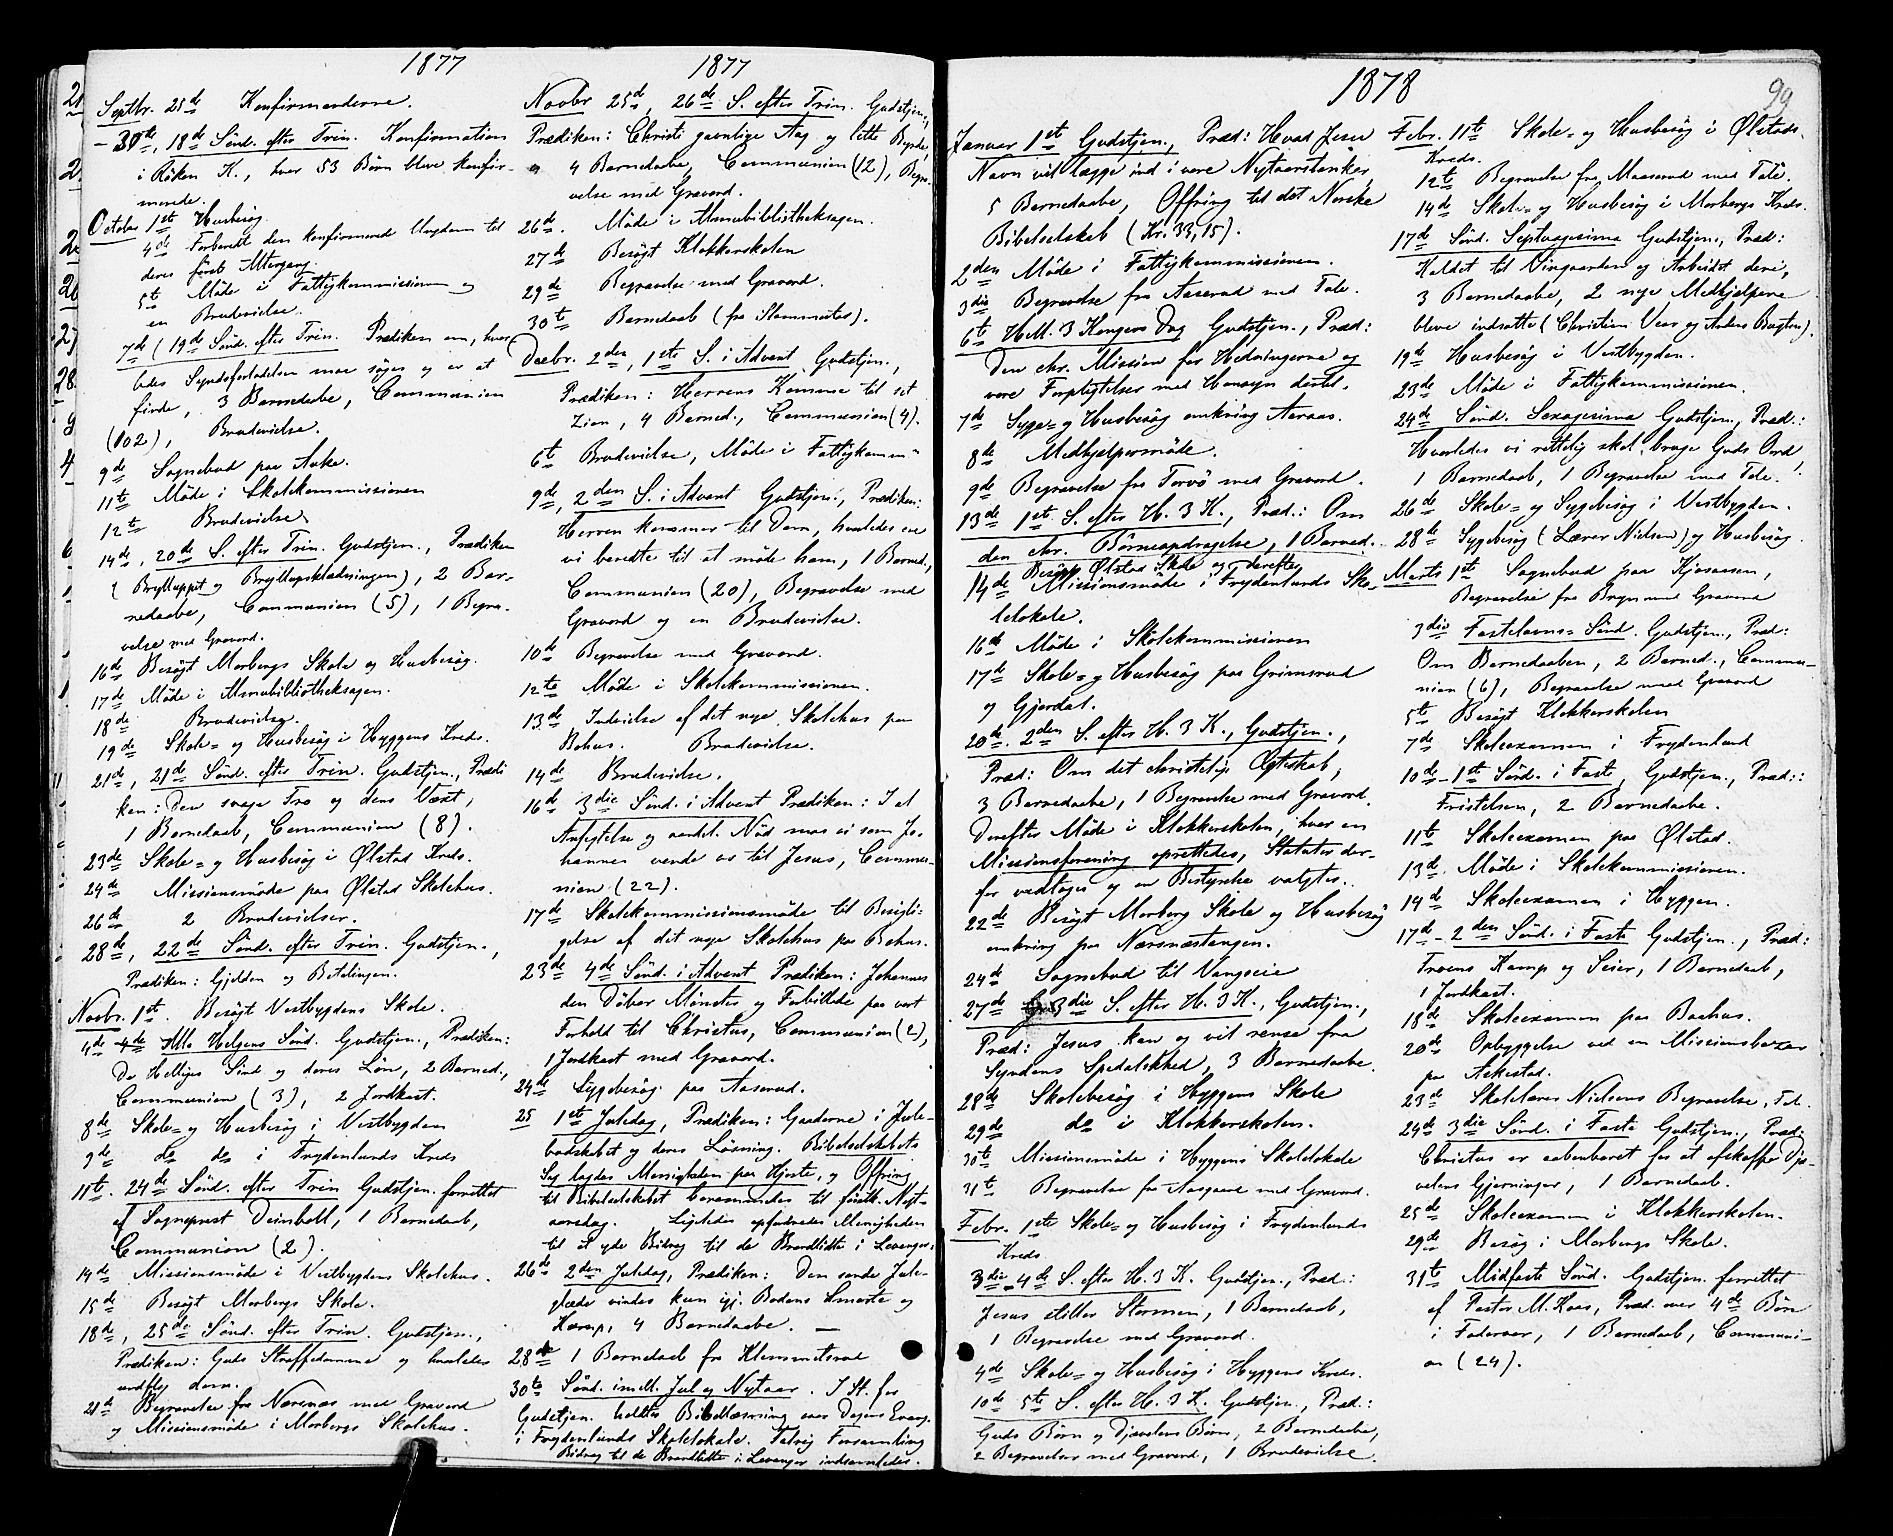 1877
Septbr. 25de Konfirmanderne.
– 30te, 18de Sönd. efter Trin. Konfirmation
i Röken K., hvor 53 Börn bleve konfir-
merede.
October 1st Husbesög.
4de Forberedt den konfirmerede Ungdom til
deres först Altergang.
5t Möde i Fattigkommissionen og
en Brudevielse.
7de (19de Sönd. efter Trin. Prædiken om, hvor-
ledes Syndsforladelsen maa söges og er at
finde, 3 Barnedaabe, Communion
(102), Brudevielse.
9de Sognebud paa Aake.
11te Möde i Skolekommissionen
12te Brudevielse
14de, 20de S. efter Trin. Gudstjen., Prædiken
(Brylluppet og Bryllupsklædningen), 2 Bar-
nedaabe, Communion (5), 1 Begra-
velse med Gravord.
16de Besögt Morbergs Skole og Husbesög.
17de Möde i Almubibliotheksagen.
18de Brudevielse.
19de Skole- og Husbesög i Hyggens Kreds.
21de, 21de Sönd. efter Trin. Gudstjen., Prædi
ken: Den svage Tro og dens Væxt,
1 Barnedaab, Communion (8).
23de Skole- og Husbesög i Ølstad Kreds.
24de Missionsmöde paa Ølstad Skolehus.
26de 2 Brudevielser.
28de, 22de Sönd. efter Trin. Gudstjen.,
Prædiken: Gjelden og Betalingen.
Novbr. 1st. Besögt Vestbygdens Skole.
4de Alle Helgens Sönd. Gudstjen., Prædiken:
De Helliges Sind og deres Lön, 2 Barned.,
Communion (3), 2 Jordkast.
8de Skole- og Husbesög i Vestbygden
9de do do i Frydenlunds Kreds
11te. 24de Sönd. efter Trin Gudstjen. forrettet
af Sognepræst Deinboll, 1 Barnedaab,
Communion (2).
14de Missionsmöde i Vestbygdens Skolehus.
15de Besögt Morbergs Skole.
18de, 25de Sönd. efter Trin. Gudstjen.,
Prædiken: Guds Straffedomme og hvorledes
undfly dem.
21de Begravelse fra Nærsnæs med Gravord
og Missionsmöde i Morbergs Skolehus.
1877
Novbr 25de, 26de S. efter Trin. Gudstjen.,
Prædiken: Christi gavnlige Aag og lette Byrde,
4 Barnedaabe, Communion (12), Begra-
velse med Gravord.
26de. Möde i Almubibliotheksagen.
27de Besögt Klokkerskolen
29de Begravelse med Gravord.
30te Barnedaab (fra Slemmestad).
Decbr. 2den, 1ste S. i Advent Gudstjen.,
Prædiken: Herrens Komme til sit
Zion, 4 Barned., Communion (4).
6t Brudevielse, Möde i Fattigkomm-
9de, 2den S. i Advent Gudstjen., Prædiken:
Herren kommer til Dom, hvorledes ere
vi beredte til at möde ham, 1 Barned.,
Communion (20), Begravelse med
Gravord og en Brudevielse.
10de Begravelse med Gravord.
12te Möde i Skolekommissionen.
13de Indvielse af det nye Skolehus paa
Bohus. Brudevielse.
14de Brudevielse.
16de 3die Sönd. i Advent Prædiken: I al
Anfegtelse og aandel. Nöd maa vi som Jo-
hannes vende os til Jesus, Commu-
nion (22).
17de Skolekommissionsmöde til Besigti-
gelse af det nye Skolehus paa Bohus.
23de 4de Sönd. i Advent Prædiken: Johannes
den Döber Mönster og Forbillede paa vort
Forhold til Christus, Communion (2),
1 Jordkast med Gravord.
24de Sygebesög paa Aaserud.
25 1st Juledag, Prædiken: Gaaderne i Jule-
budskabet og deres Lösning. Bibelselskabets
Sag lagdes Menigheden paa Hjerte, og Offring
til Bibelselskabet berammedes til förstk. Nyt-
aarsdag. Ligeledes opfordredes Menigheden
til at yde Bidrag til de Brandlidte i Levanger.
26de 2den Juledag, Prædiken: Den sande Jule-
glæde vindes kun igj. Bodens Smerte og
Kamp, 4 Barnedaabe. —
28de 1 Barnedaab fra Klemmetsrud
30te Sönd. imell. Jul og Nytaar. I St. for
Gudstjen. holdtes Bibellæsning over Dagens Evang.
i Frydenlunds Skolelokale. Talrig Forsamling
Bidrag til de Brandlidte i Levanger indsamledes.
1878
99
Januar 1st Gudstjen., Præd: Hvad Jesu
Navn vil lægge ind i vore Nytaarstanker,
5 Barnedaabe, Offring til det Norske
Bibelselskab (Kr. 33,15).
2den Möde i Fattigkommissionen.
3die Begravelse fra Aaserud med Tale.
6te H. M. 3 Kongers Dag Gudstjen., Præd:
Den chr. Mission for Hedningerne og
vore Forpligtelser med Hensyn dertil.
7de Syge- og Husbesög omkring Aaraas.
8de Medhjelpermöde.
9de Begravelse fra Torvö med Gravord.
13de 1st S. efter H. 3 K., Præd.: Om
den chr. Börneopdragelse, 1 Barned.
Besögt Ølstad Skole og derefter
14de Missionsmöde i Frydenlunds Sko-
lelokale.
16de Möde i Skolekommissionen
17de Skole- og Husbesög paa Grimsrud
og Gjerdal.
20de. 2den S. efter H. 3 K., Gudstjen.,
Præd: Om det christelige Ægteskab,
3 Barnedaabe, 1 Begravelse med Gravord.
Derefter Möde i Klokkerskolen, hvor en
Missionsforening oprettedes, Statuter der-
for vedtoges og en Bestyrelse valgtes.
22de Besögt Morberg Skole og Husbesög
omkring paa Nærsnæstangen.
24de Sognebud til Vangseie
27de 3die S. efter H. 3 K., Gudstjen.,
Præd: Jesus kan og vil rense fra
Syndens Spedalskhed, 3 Barnedaabe.
28de Skolebesög i Hyggens Skole
29de do i Klokkerskolen.
30te Missionsmöde i Hyggens Skolelokale
31te Begravelse fra Aasgaard med Gravord.
Febr. 1ste Skole- og Husbesög i Frydenlunds
Kreds
3die 4de S. efter H. 3 K. Gudstjen., Præd:
Jesus stiller Stormen, 1 Barnedaab,
1 Begravelse med Gravord.
4de Skole- og Husbesög i Hyggens Kreds.
10de 5te S. efter H. 3 K. Gudstjen., Præd:
Guds Börn og Djævelens Börn, 2 Barnedaabe,
2 Begravelser med Gravord, 1 Brudevielse.
Febr. 11te Skole- og Husbesög i Ølstads
Kreds.
12te Begravelse fra Maaserud med Tale.
14de Skole- og Husbesög i Morbergs Kreds.
17de Sönd. Septuagesima Gudstjen., Præd:
Kaldet til Vingaarden og Arbeidet deri,
3 Barnedaabe, 2 nye Medhjelpere
bleve indsatte (Christian Vear og Anders Bögton).
19de Husbesög i Vestbygden.
23de Möde i Fattigkommissionen.
24de Sönd. Sexagesima Gudstjen., Præd.:
Hvorledes vi rettelig skal bruge Guds Ord
1 Barnedaab, 1 Begravelse med Tale.
26de Skole- og Sygebesög i Vestbygden.
28de Sygebesög (Lærer Nielsen) og Husbesög.
Marts 1st Sognebud paa Kjosaasen,
Begravelse fra Bryn med Gravord
3die Fastelavns-Sönd. Gudstjen., Præd:
Om Barnedaaben, 2 Barned., Commu-
nion (6), Begravelse med Gravord
5te Besögt Klokkerskolen
7de Skoleexamen i Frydenlund
10de – 1st Sönd. i Faste, Gudstjen., Præd.:
Fristelsen, 2 Barnedaabe.
11te Skoleexamen paa Ølstad.
13de. Möde i Skolekommissionen.
14de Skoleexamen i Hyggen.
17de – 2den Sönd. i Faste Gudstjen., Præd:
Troens Kamp og Seier, 1 Barnedaab,
1 Jordkast.
18de Skoleexamen paa Baahus.
20de Opbyggelse ved en Missionsbazar
paa Aakestad.
23de Skolelærer Nielsens Begravelse, Tale.
24de 3die Sönd. i Faste Gudstjen., Præd:
Christus er aabenbaret for at afskaffe Djæ-
velens Gjerninger, 1 Barnedaab.
25de Skoleexamen i Klokkerskolen.
29de Besög i Morbergs Skole.
31te Midfaste Sönd. Gudstjen. forrettet
af Pastor M. Koss, Præd. over 4de Bön
i Fadervor, 1 Barnedaab, Communi-
on (24).